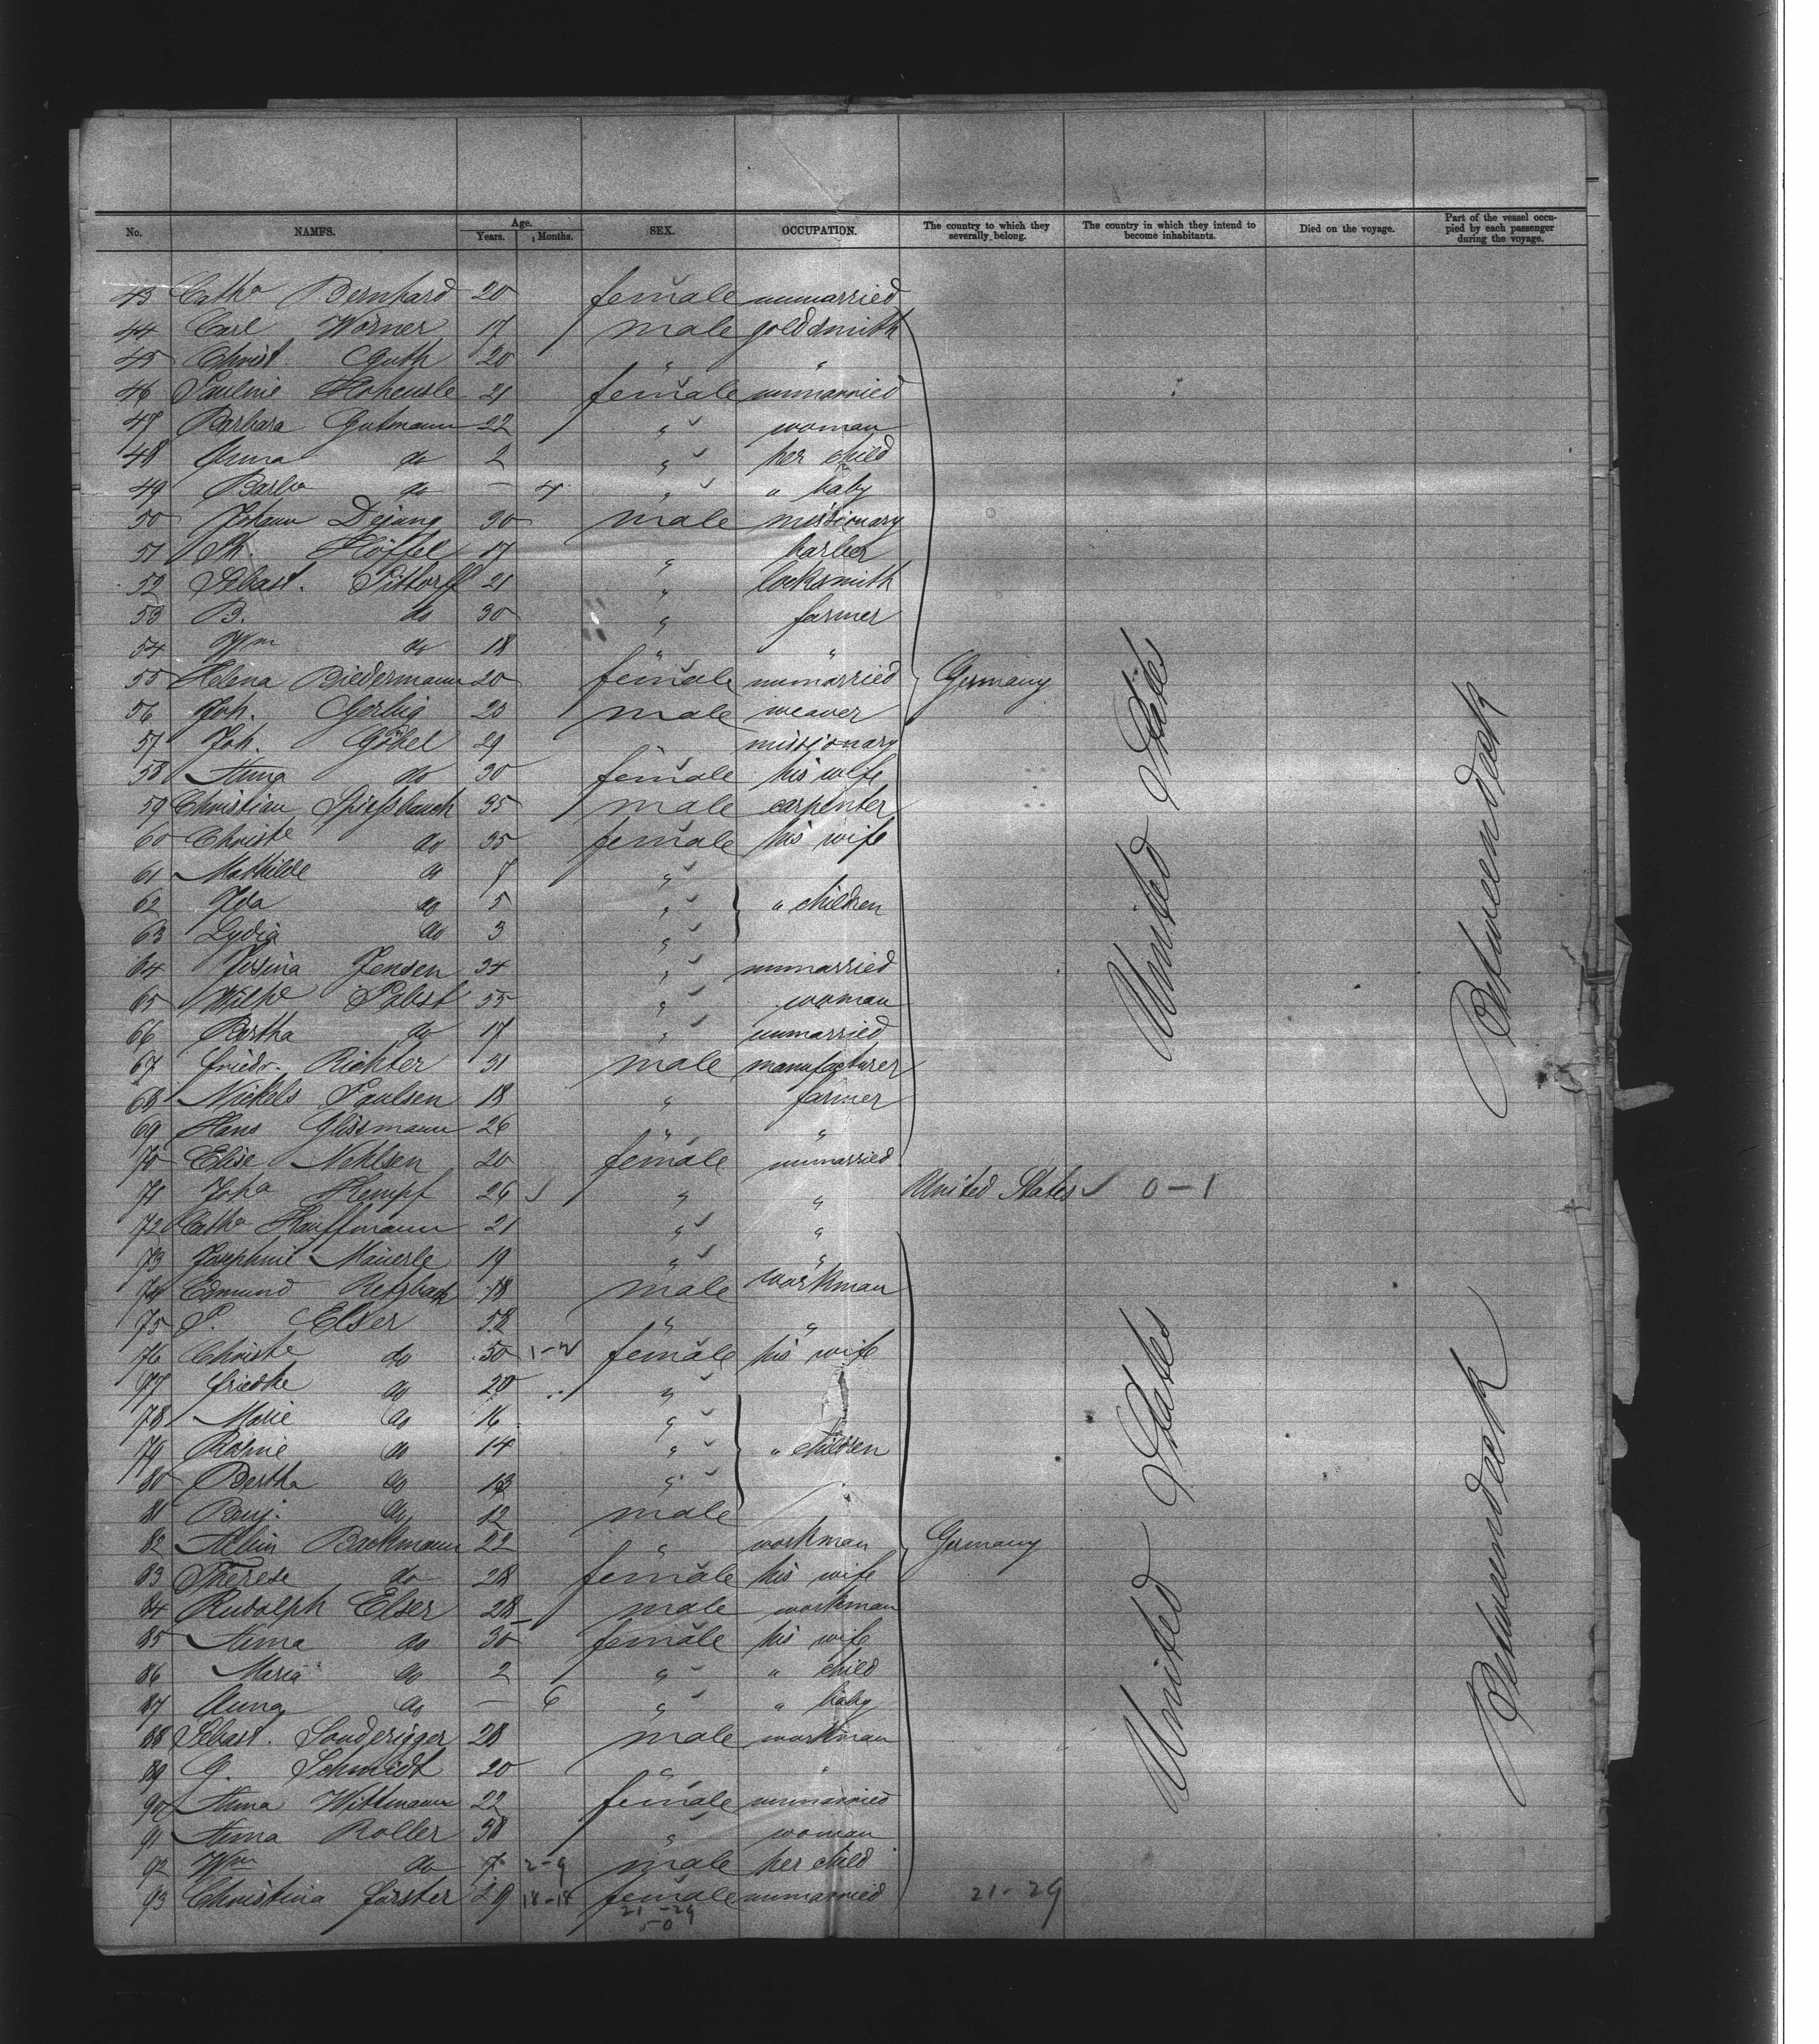 No. NAMES. Age. Years. Months. SEX. OCCUPATION. The country to which they severally belong. The country in which they intend to become inhabitants. Died on the voyage. Part of the vessel occupied by each passenger during the voyage.
43 Cathe Bernhard 20 female unmarried
44 Carl Wörner 17 male goldsmith
45 Christ. Guth 20 " "
46 Pauline 21 female unmarried
47 Barbara Gutmann 22 " woman
48 Anna do 2 " her child
49 Barba do — 4 " " baby
50 Johann Dejung 30 male missionary
51 Ph. Höffel 17 " barber
52 Sebast. Pittorff 21 " locksmith
53 B. do 30 " farmer
54 Wm do 18 " "
55 Helena Biedermann 20 female unmarried Germany
56 Joh. Gerbig 20 male weaver
57 Joh. Göbel 29 " missionary
58 Anna do 30 female his wife
59 Christian Spiessbauch 35 male carpenter
60 Christe do 35 female his wife
61 Mathilde do 7 "
62 Ida do 5 " " children
63 Lydia do 3 "
64 Jensen 34 " unmarried
65 Wilhe Pabst 55 " woman
66 Bertha do 17 " unmarried
67 Friedr. Richter 31 male manufacturer
68 Nickels Paulsen 18 " farmer
69 Hans Glissmann 26 " "
70 Elise Nehlsen 20 female unmarried
United States
Betweendeck
71 Joha Kempf 26 " " United States 0-1
72 Cathe Kauffmann 21 " "
73 Josephine Mäuerle 19 " "
74 Edmund Retzbach 18 male workman
75 P. Elser 52 " "
76 Christe do 50 1-2 female his wife
77 Friedke do 20 "
78 Marie do 16 "
79 Rosine do 14 " " children
80 Bertha do 13 "
81 Benj. do 12 male
82 Albin Backmann 22 " workman Germany
83 Therese do 28 female his wife
84 Rudolph Elser 28 male workman
85 Anna do 30 female his wife
86 Maria do 2 " " child
87 Anna do — 6 " " baby
88 Sebast. Sonderigger 28 male workman
89 G. Schmidt 20 " "
90 Anna Wittmann 22 female unmarried
91 Anna Roller 38 " woman
92 Wm do 7 2-9 male her child
93 Christina Förster 29 18-18 female unmarried 21-29
21-29
5-0
United States
Betweendeck